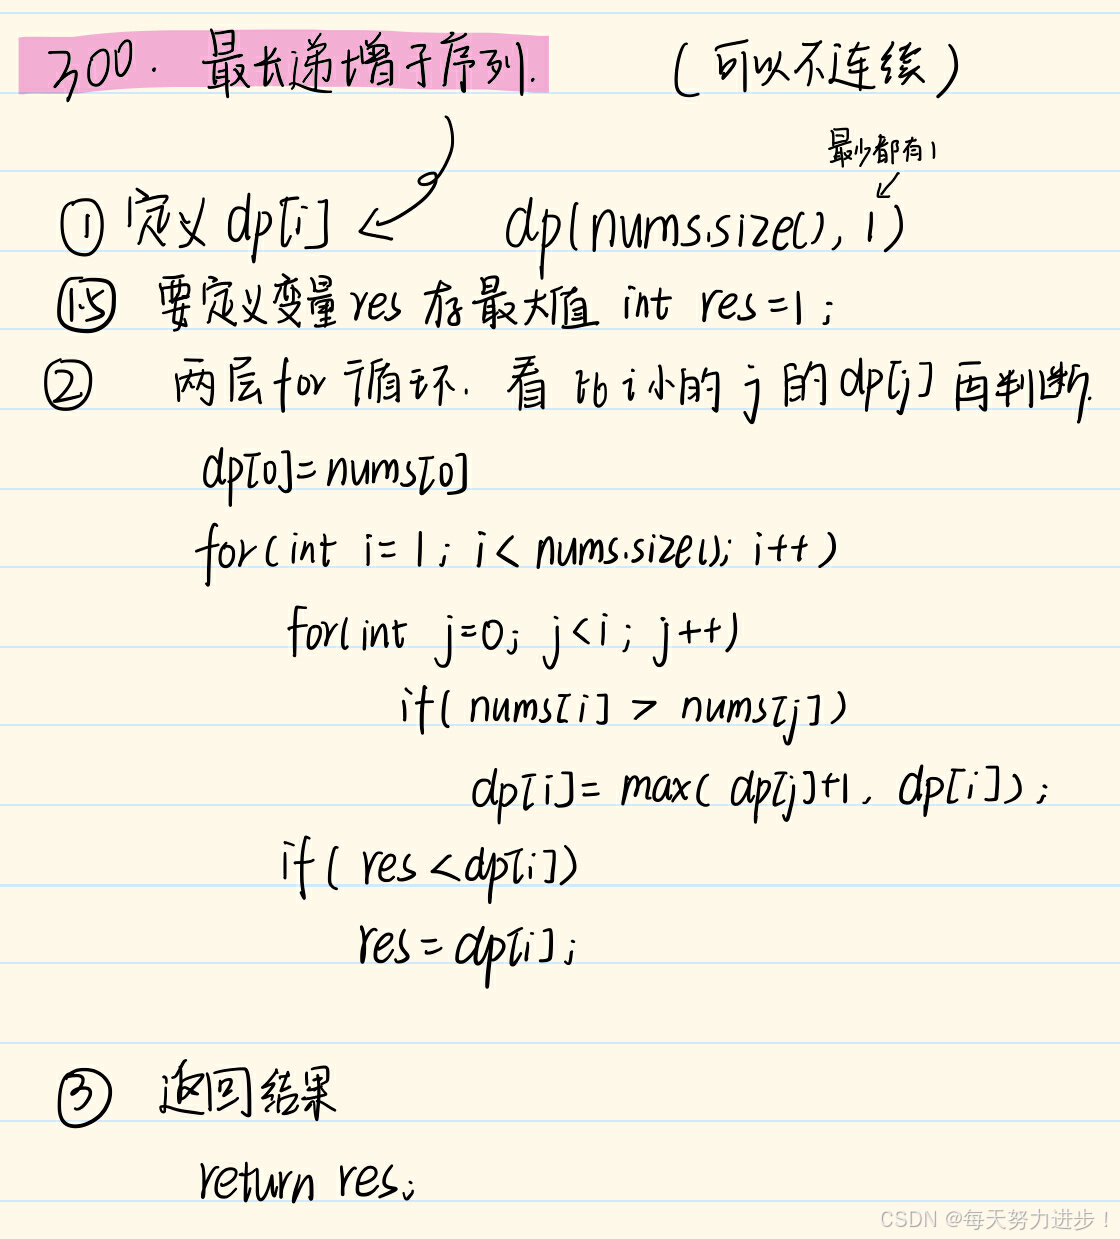 300. 最长递增子序列. (可以不连续)
最少都有1
① 定义 dp[i] dp(nums.size(), 1)
①.5 要定义变量 res 存最大值 int res=1;
② 两层for循环. 看比i小的j的dp[j]再判断.
dp[0]=nums[0]
for(int i=1; i<nums.size(); i++)
for(int j=0; j<i; j++)
if(nums[i] > nums[j])
dp[i]= max(dp[j]+1, dp[i]);
if(res<dp[i])
res=dp[i];
③ 返回结果
return res;
CSDN @每天努力进步！